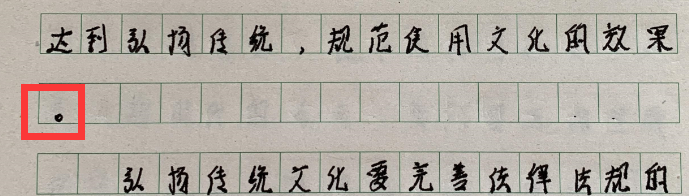 达到弘扬传统，规范使用文化的效果
。
弘扬传统文化要完善法律法规的